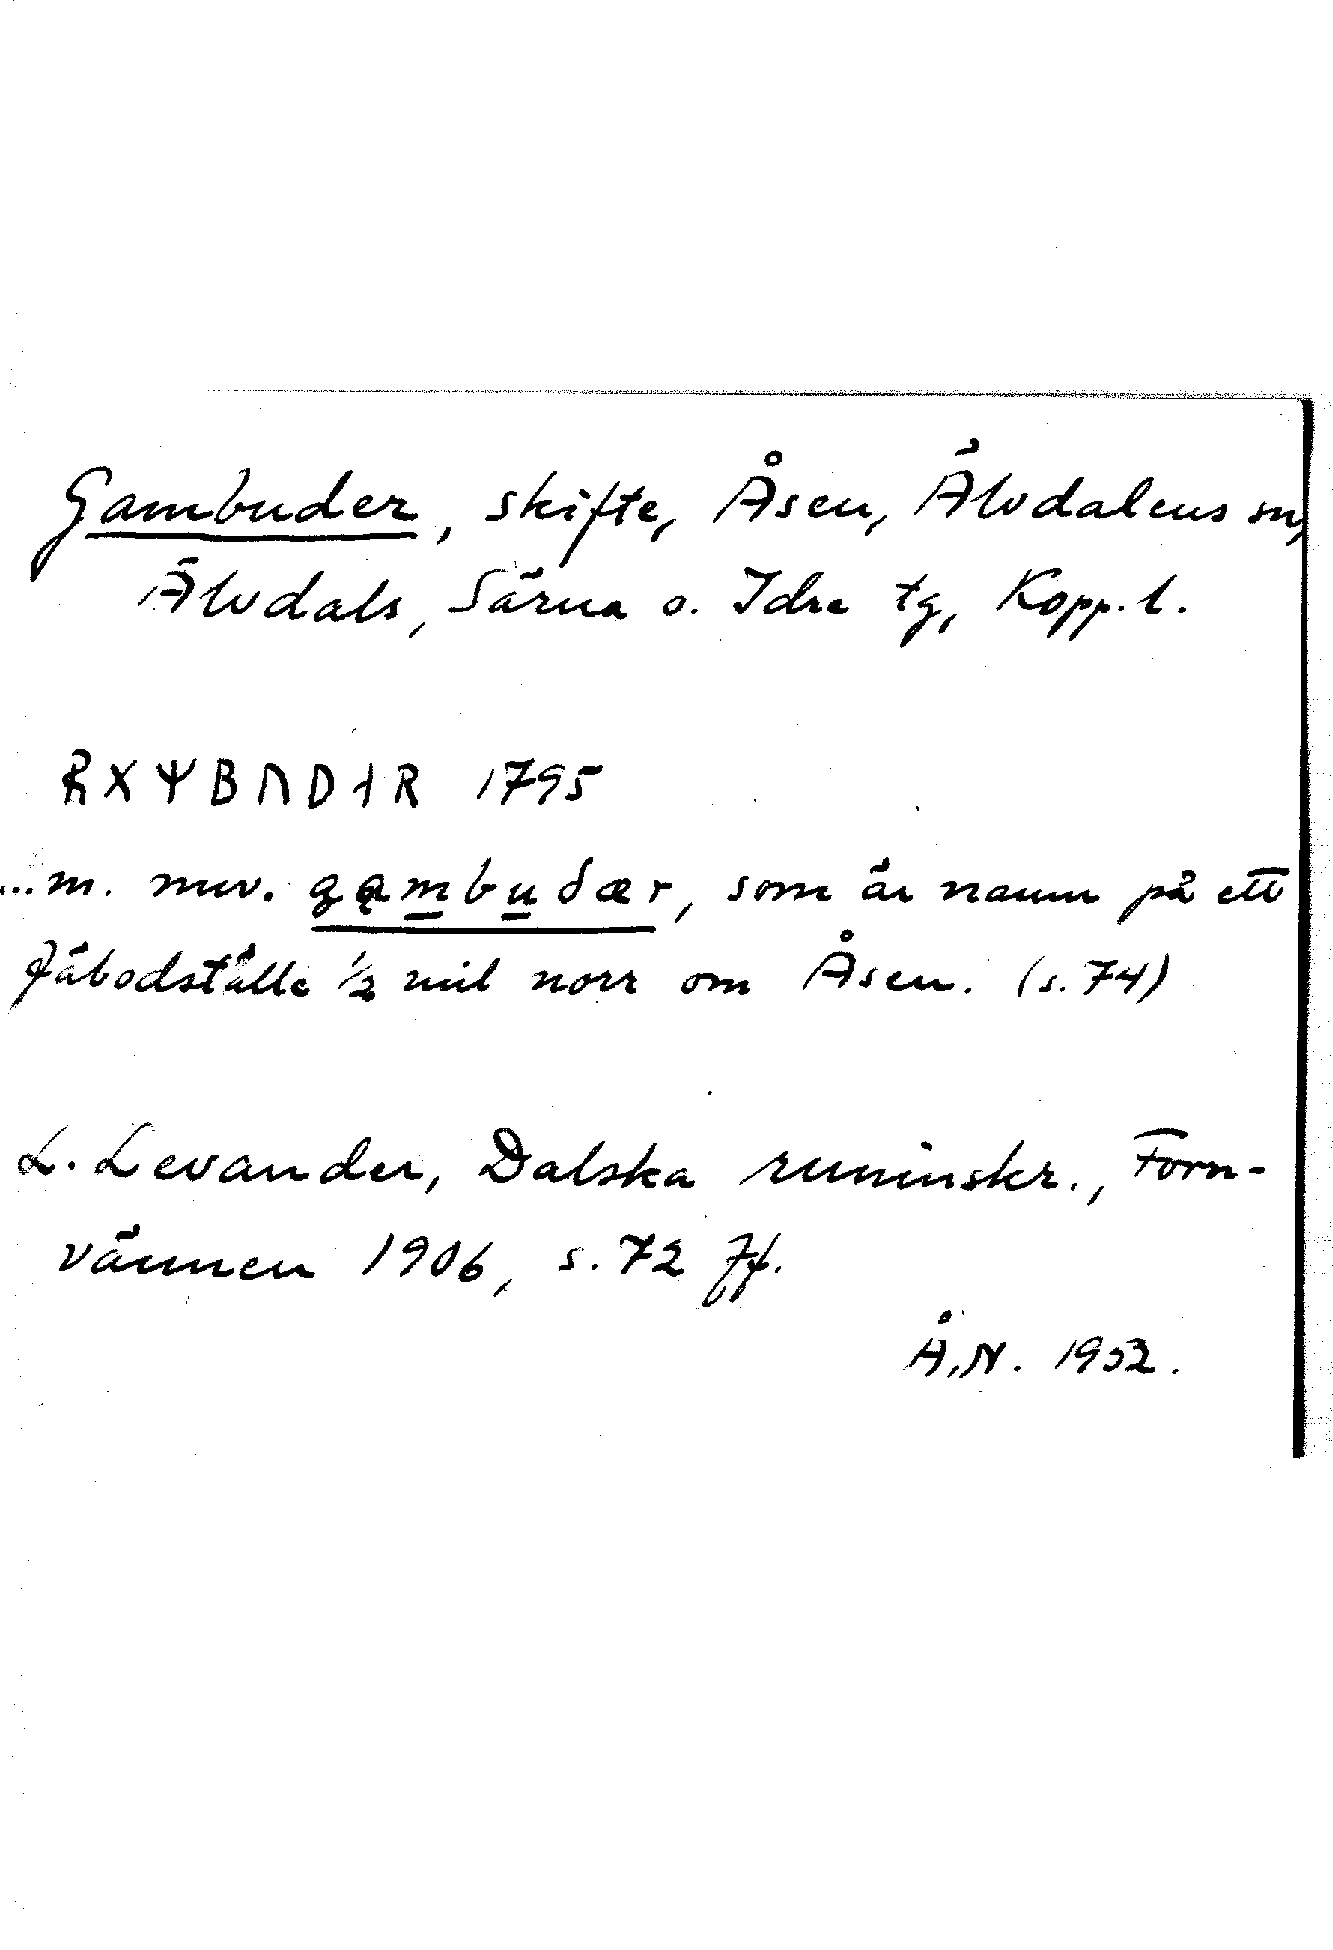 Gambuder, skifte, Åsen, Älvdalens sn,
Älvdals, Särna o. Idre tg, Kopp. l.
ᚱXᛘBᚢDᛆR 1795
...m. nuv. gąmbuðær, som är namn på ett
fäbodställe ½ mil norr om Åsen. (s. 74)
L. Levander, Dalska runinskr., Forn-
vännen 1906, s. 72 ff.
Å. N. 1952.